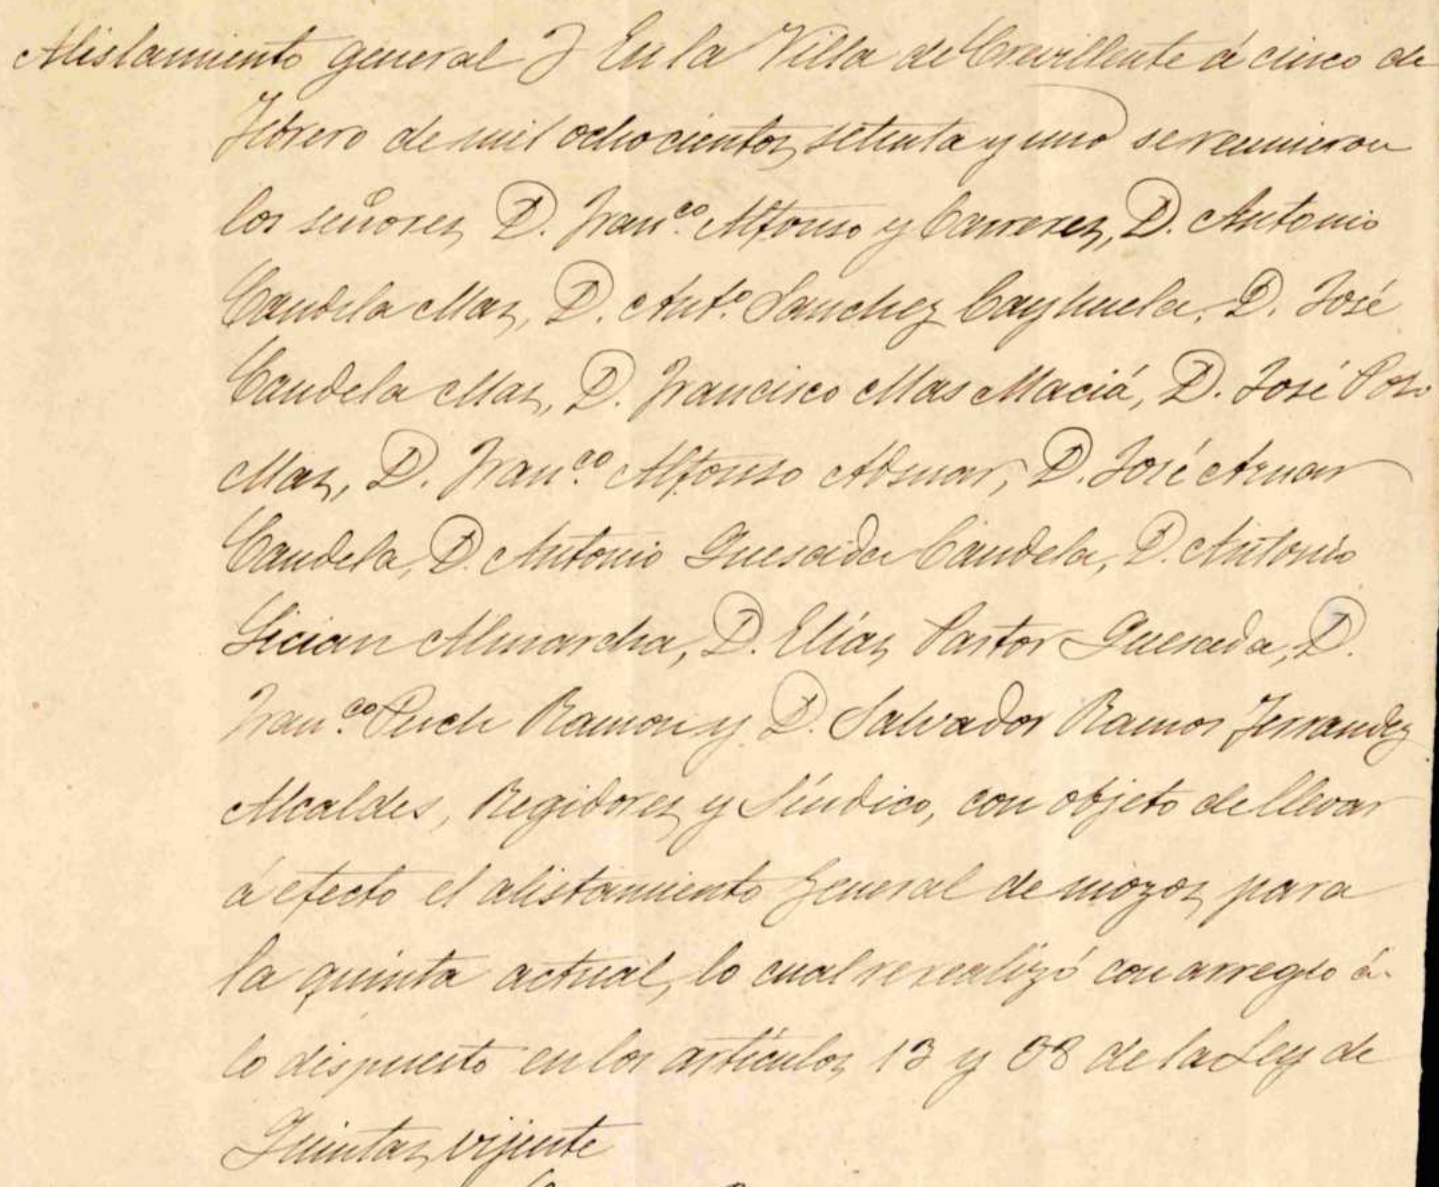 Alistamiento general } En la Villa de Crevillente á cinco de
Febrero de mil ochocientos setenta y uno se reunieron
los señores D. Fran.co Alfonso y Carreres, D. Antonio
Candela Mas, D. Ant.o Sanchez Cayhuela, D. José
Candela Mas, D. Francisco Mas Maciá, D. José Polo
Mas, D. Fran.co Alfonso Adsuar, D. José Aznar
Candela, D. Antonio Quesada Candela, D. Antonio
Lician Almarcha, D. Elías Pastor Quesada, D.
Fran.co Puch Ramon y D. Salvador Ramos Ferrandez
Alcaldes, Regidores y Síndico, con objeto de llevar
á efecto el alistamiento general de mozos para
la quinta actual, lo cual se realizó con arreglo á
lo dispuesto en los artículos 13 y 38 de la Ley de
Quintas vijente